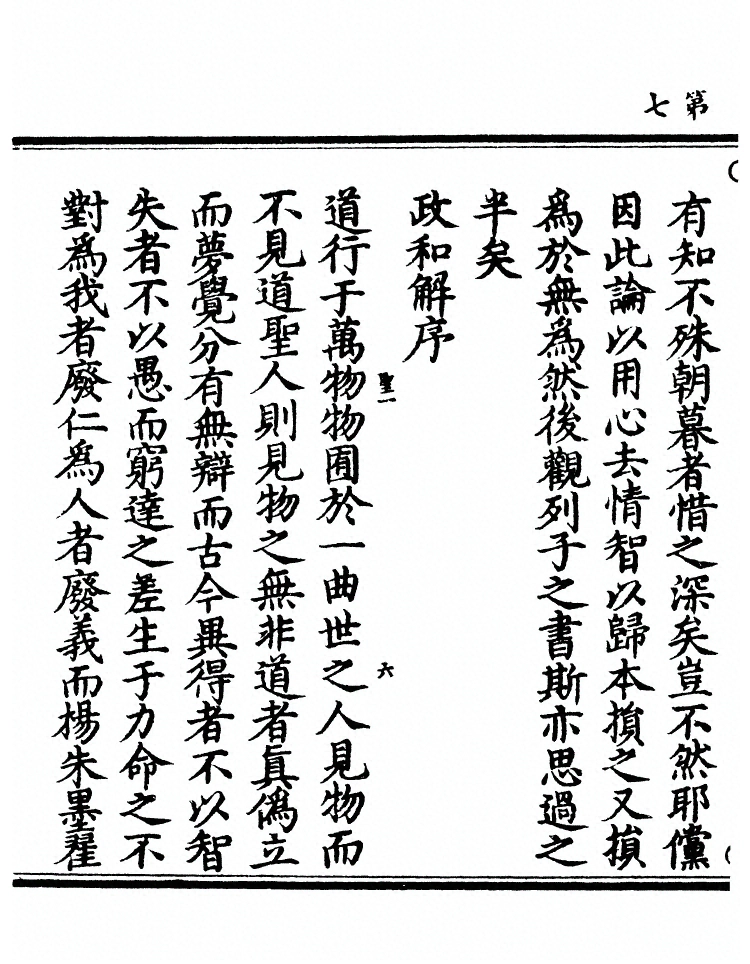 第七
有知不殊朝暮者惜之深矣豈不然耶儻
因此論以用心去情智以歸本損之又損
爲於無爲然後觀列子之書斯亦思過之
半矣
政和解序
聖一
六
道行于萬物物囿於一曲世之人見物而
不見道聖人則見物之無非道者眞僞立
而夢覺分有無辯而古今異得者不以智
失者不以愚而窮達之差生于力命之不
對爲我者廢仁爲人者廢義而揚朱墨翟